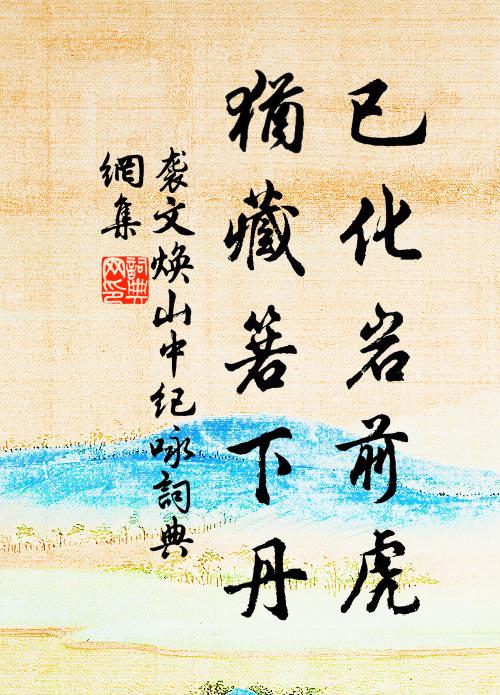 已化岩前虎
猶藏箬下丹
裘文煥山中紀詠詞典
網集
詞典網印